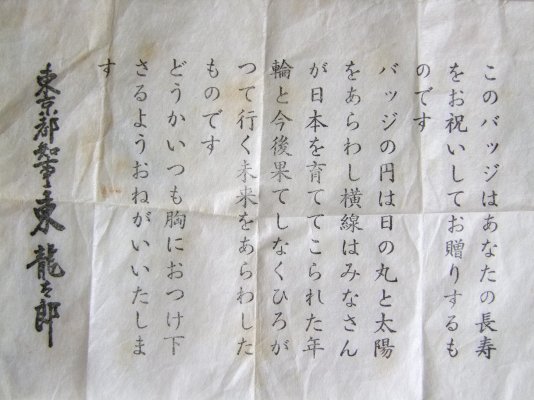 このバッジはあなたの長寿
をお祝いしてお贈りするも
のです
バッジの円は日の丸と太陽
をあらわし横線はみなさん
が日本を育ててこられた年
輪と今後果てしなくひろが
つて行く未来をあらわした
ものです
どうかいつも胸におつけ下
さるようおねがいいたしま
す
東京都知事東龍太郎